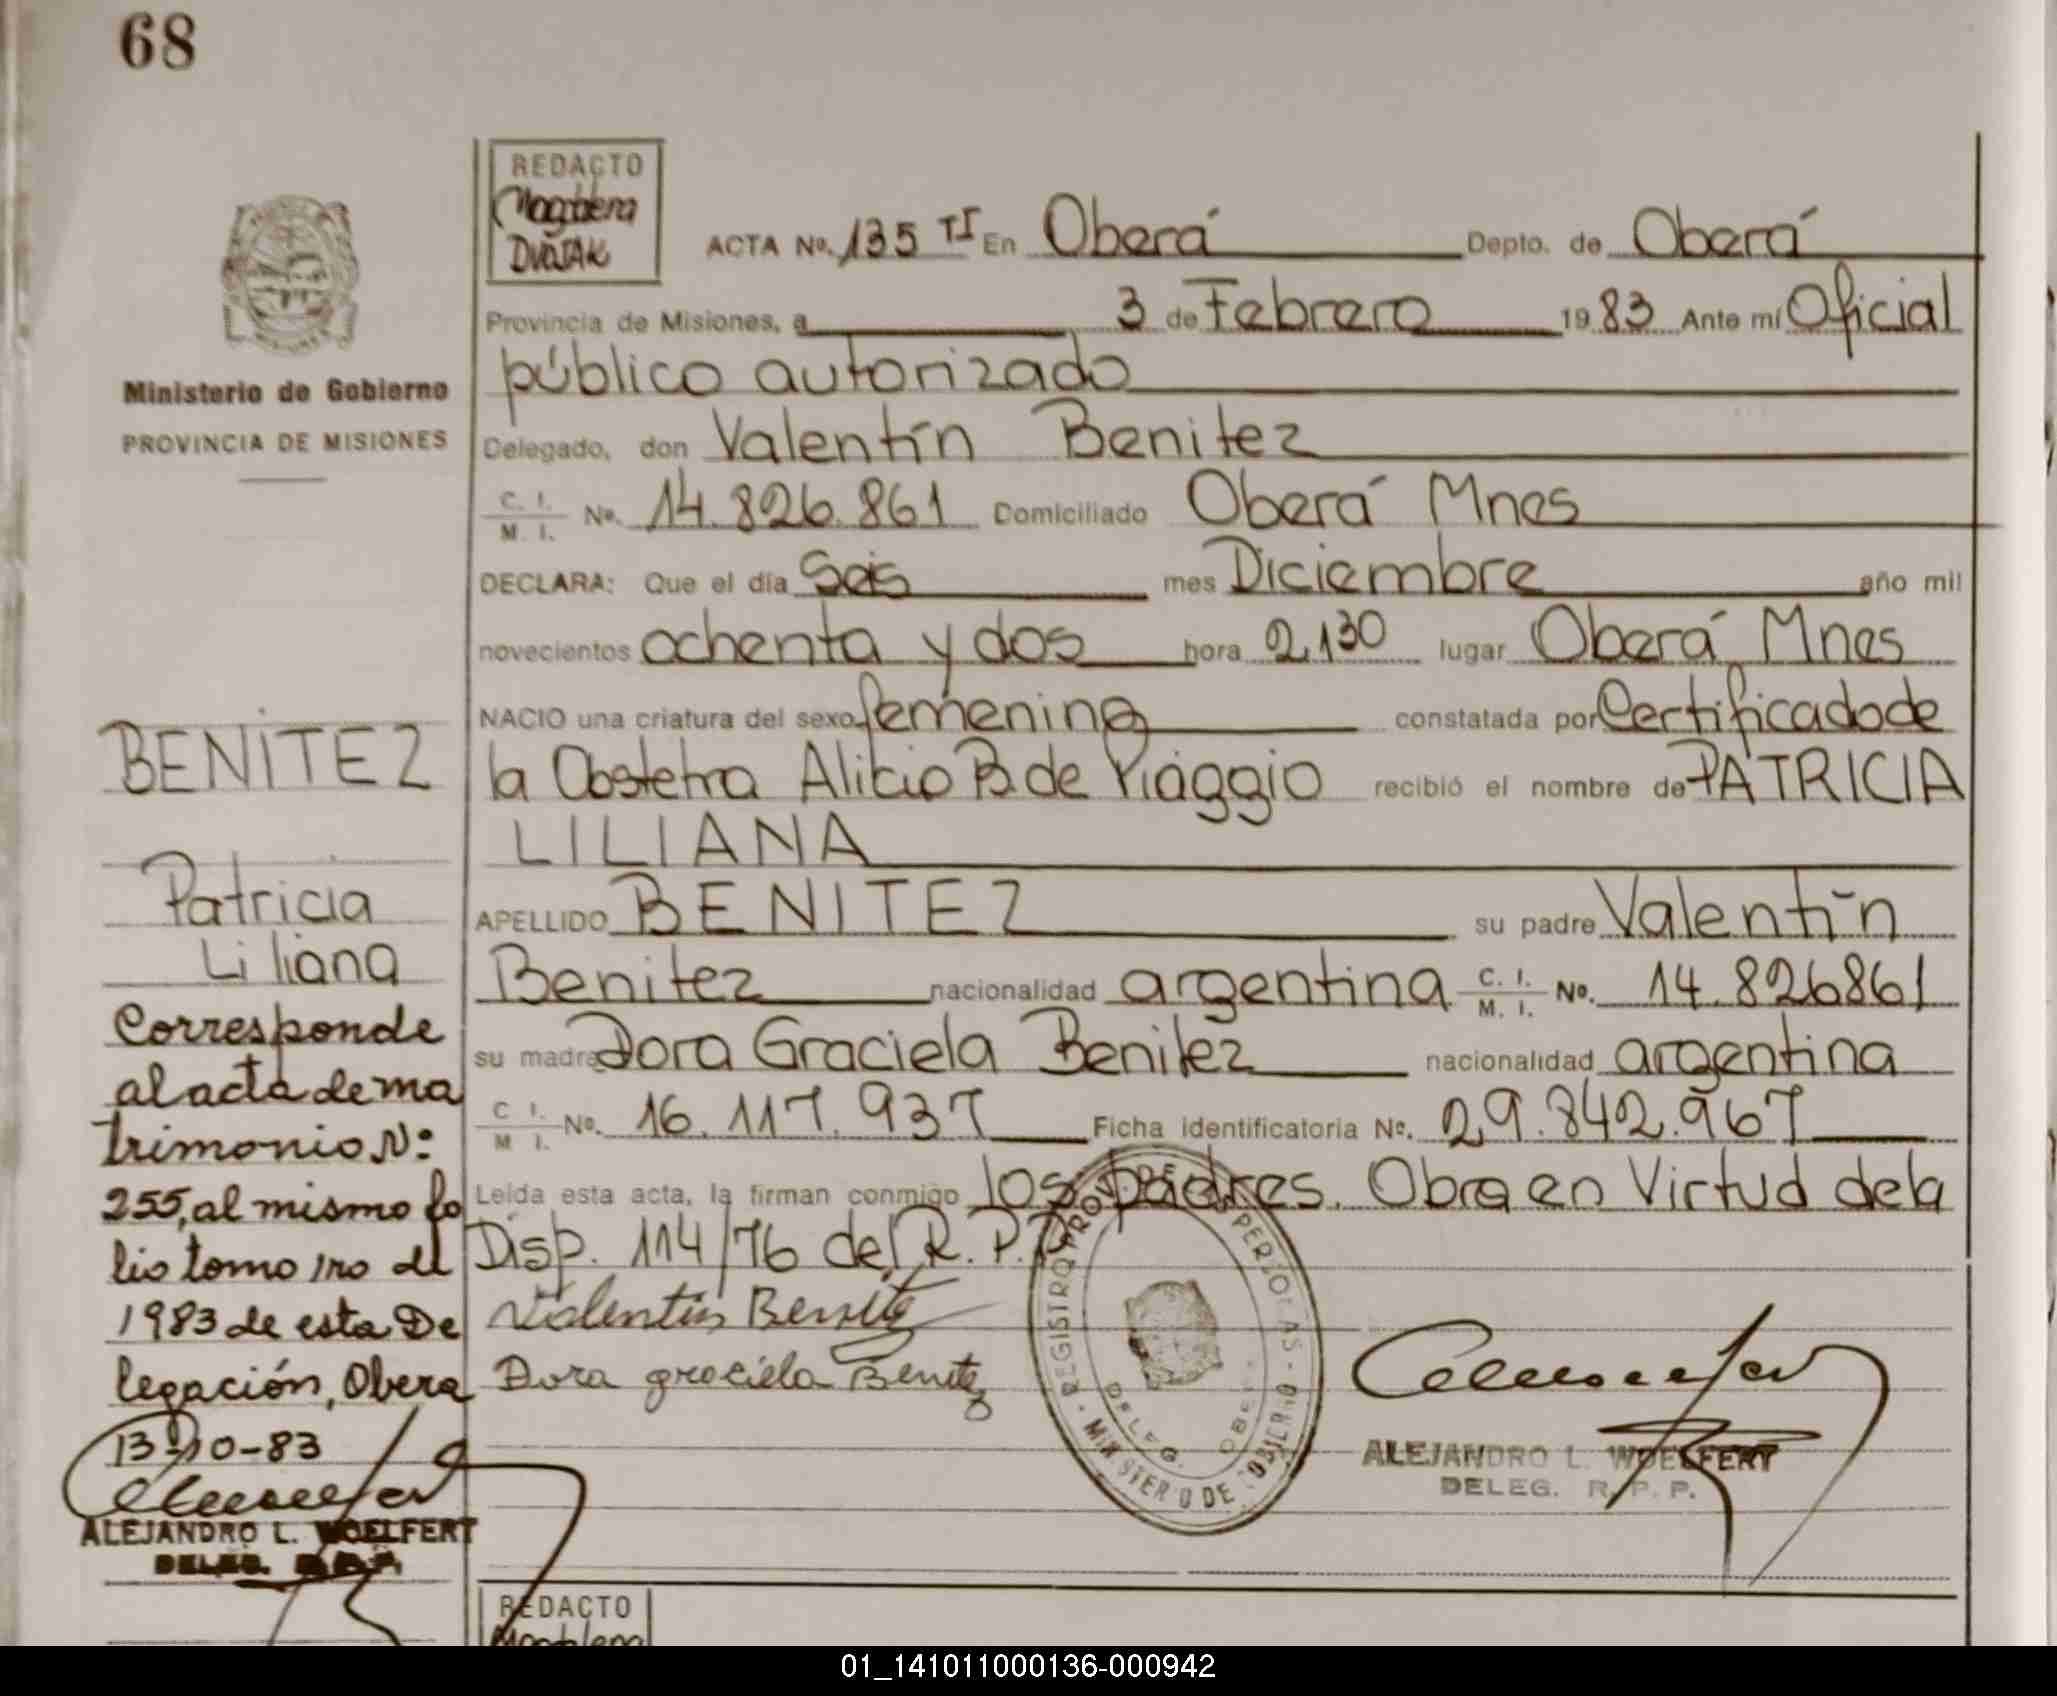 68
REDACTO
Magdalena
DVOJAK
ACTA Nº. 135 TI En Oberá Depto. de Oberá
Provincia de Misiones, a 3 de Febrero 1983 Ante mí Oficial
público autorizado
Delegado, don Valentín Benitez
C. I. / M. I. Nº. 14.826.861 Domiciliado Oberá Mnes
DECLARA: Que el día Seis mes Diciembre año mil
novecientos ochenta y dos hora 2,130 lugar Oberá Mnes
NACIO una criatura del sexo femenino constatada por Certificado de
la Obstetra Alicia B. de Piaggio recibió el nombre de PATRICIA
LILIANA
APELLIDO BENITEZ su padre Valentín
Benitez nacionalidad argentina C. I. / M. I. Nº. 14.826861
su madre Dora Graciela Benitez nacionalidad argentina
C I. / M I. Nº. 16.117.937 Ficha identificatoria Nº. 29.842.967
Leída esta acta, la firman conmigo los padres. Obra en Virtud de la
Disp. 114/76 del R. P. P.
Valentin Benitez
Dora graciela Benitez
REGISTRO PROV. DE LAS PERSONAS - MINISTERIO DE GOBIERNO
DELEG. OBERA
ALEJANDRO L. WOELFERT
DELEG. R. P. P.
Ministerio de Gobierno
PROVINCIA DE MISIONES
BENITEZ
Patricia
Liliana
Corresponde
al acta de ma
trimonio Nº:
255, al mismo fo
lio tomo 1ro del
1983 de esta De
legación, Obera
13-10-83
ALEJANDRO L. WOELFERT
DELEG. R.P.P.
REDACTO
Magdalena
01_141011000136-000942